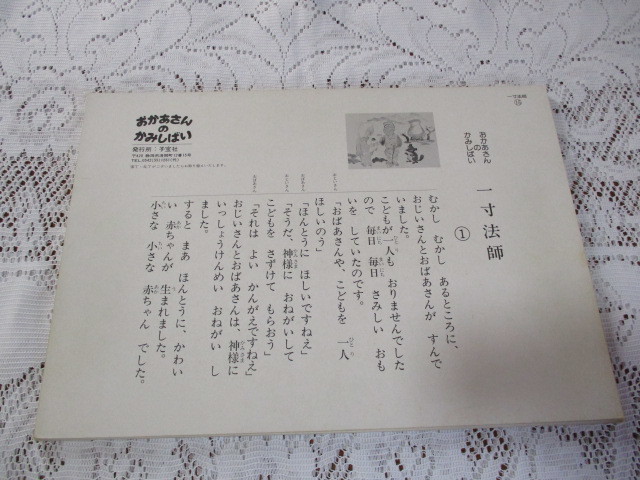 一寸法師
⑮
おかあさん
の
かみしばい
一寸法師
①
むかし　むかし　あるところに、
おじいさんとおばあさんが　すんで
いました。
こどもが一人も　おりませんでした
ので　毎日　毎日　さみしい　おも
いを　していたのです。
「おばあさんや、こどもを　一人
ほしいのう」
「ほんとうに　ほしいですねえ」
「そうだ、神様に　おねがいして
こどもを　さずけて　もらおう」
「それは　よい　かんがえですねえ」
おじいさんとおばあさんは、神様に
いっしょうけんめい　おねがい　し
ました。
すると　まあ　ほんとうに、かわい
い　赤ちゃんが　生まれました。
小さな　小さな　赤ちゃん　でした。
おかあさん
の
かみしばい
発行所：宇宝社